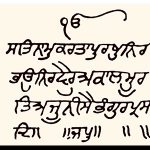 ੴ
ਸਤਿਨਾਮੁਕਰਤਾਪੁਰਖੁਨਿਰ
ਭਉਨਿਰਵੈਰੁਅਕਾਲਮੂਰ
ਤਿਅਜੂਨੀਸੈਭੰਗੁਰਪ੍ਰਸ
ਦਿ॥ ॥ਜਪੁ॥ ॥ ॥